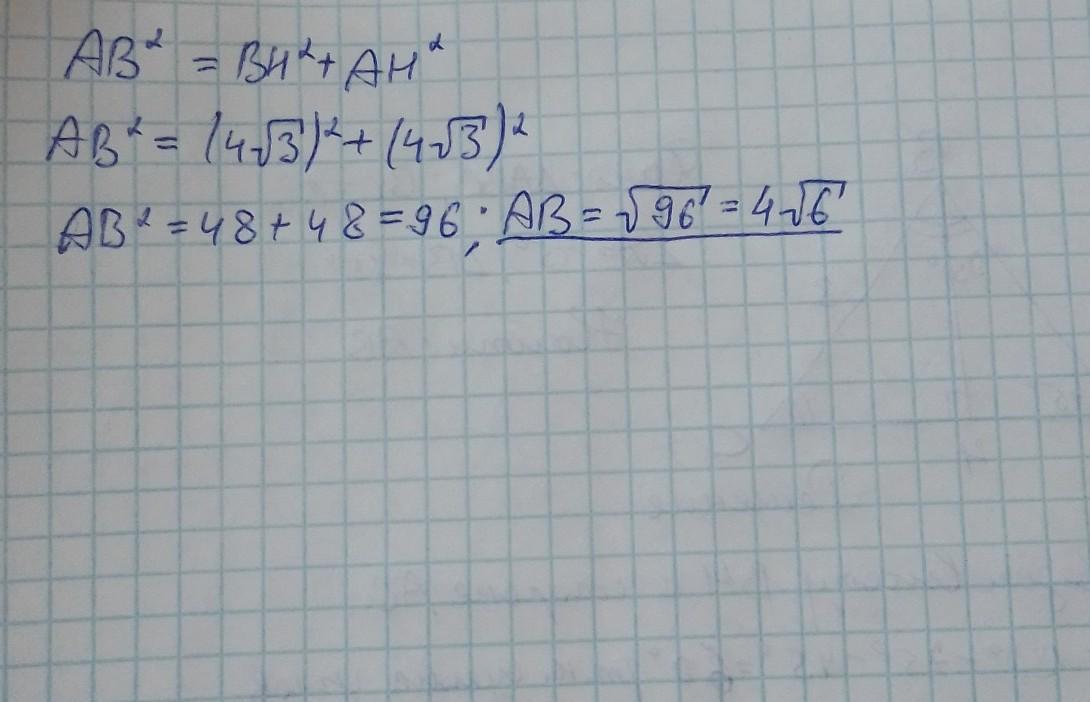 AB² = BH² + AH²
AB² = (4√3)² + (4√3)²
AB² = 48 + 48 = 96; AB = √96 = 4√6